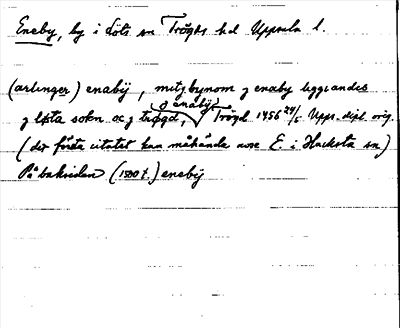 Eneby, by i Löts sn Trögds hd Uppsala l.
(arlinger) enabÿ, mitz bynom j enaby liggiandes
j enabÿ
j løta sokn oc j trøgd, Trögd 1456 24/5 Upps. dipl. orig.
(det första citatet kan måhända avse E. i Hacksta sn)
På baksidan (1500 t.) enebÿ